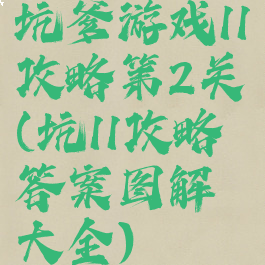 坑爹游戏11
攻略第2关
(坑11攻略
答案图解
大全)